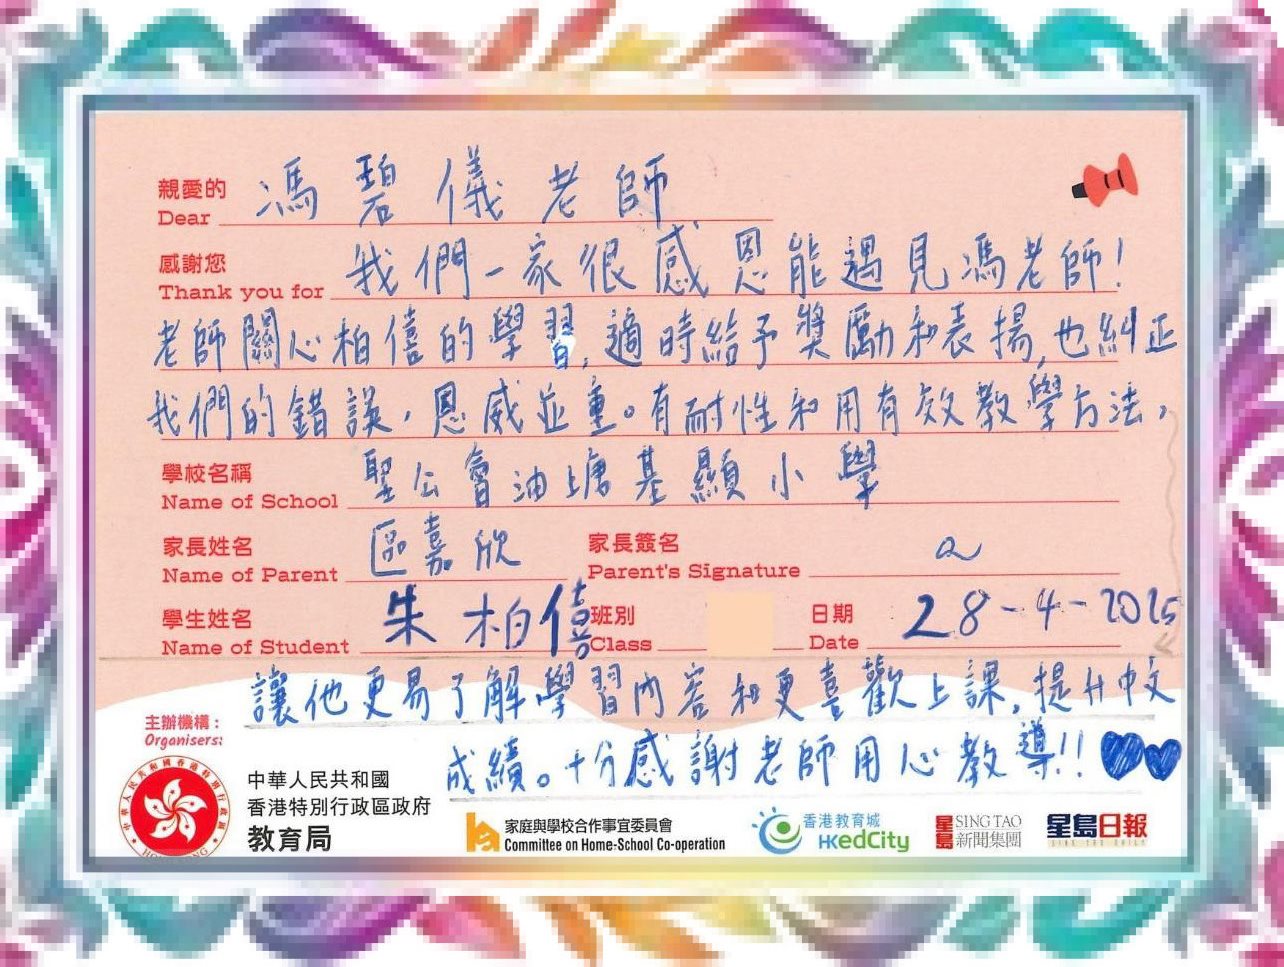 親愛的
Dear 馮碧儀老師
感謝您
Thank you for 我們一家很感恩能遇見馮老師！
老師關心柏僖的學習，適時給予獎勵和表揚，也糾正
我們的錯誤，恩威並重。有耐性和用有效教學方法，
學校名稱
Name of School 聖公會油塘基顯小學
家長姓名
Name of Parent 區嘉欣
家長簽名
Parent's Signature
學生姓名
Name of Student 朱柏僖
班別
Class
日期
Date 28-4-2025
讓他更易了解學習內容和更喜歡上課，提升中文
成績。十分感謝老師用心教導!!
主辦機構：
Organisers:
中華人民共和國
香港特別行政區政府
教育局
家庭與學校合作事宜委員會
Committee on Home-School Co-operation
香港教育城
HKedCity
星島 SING TAO
新聞集團
星島日報
SING TAO DAILY
中華人民共和國香港特別行政區
HONG KONG